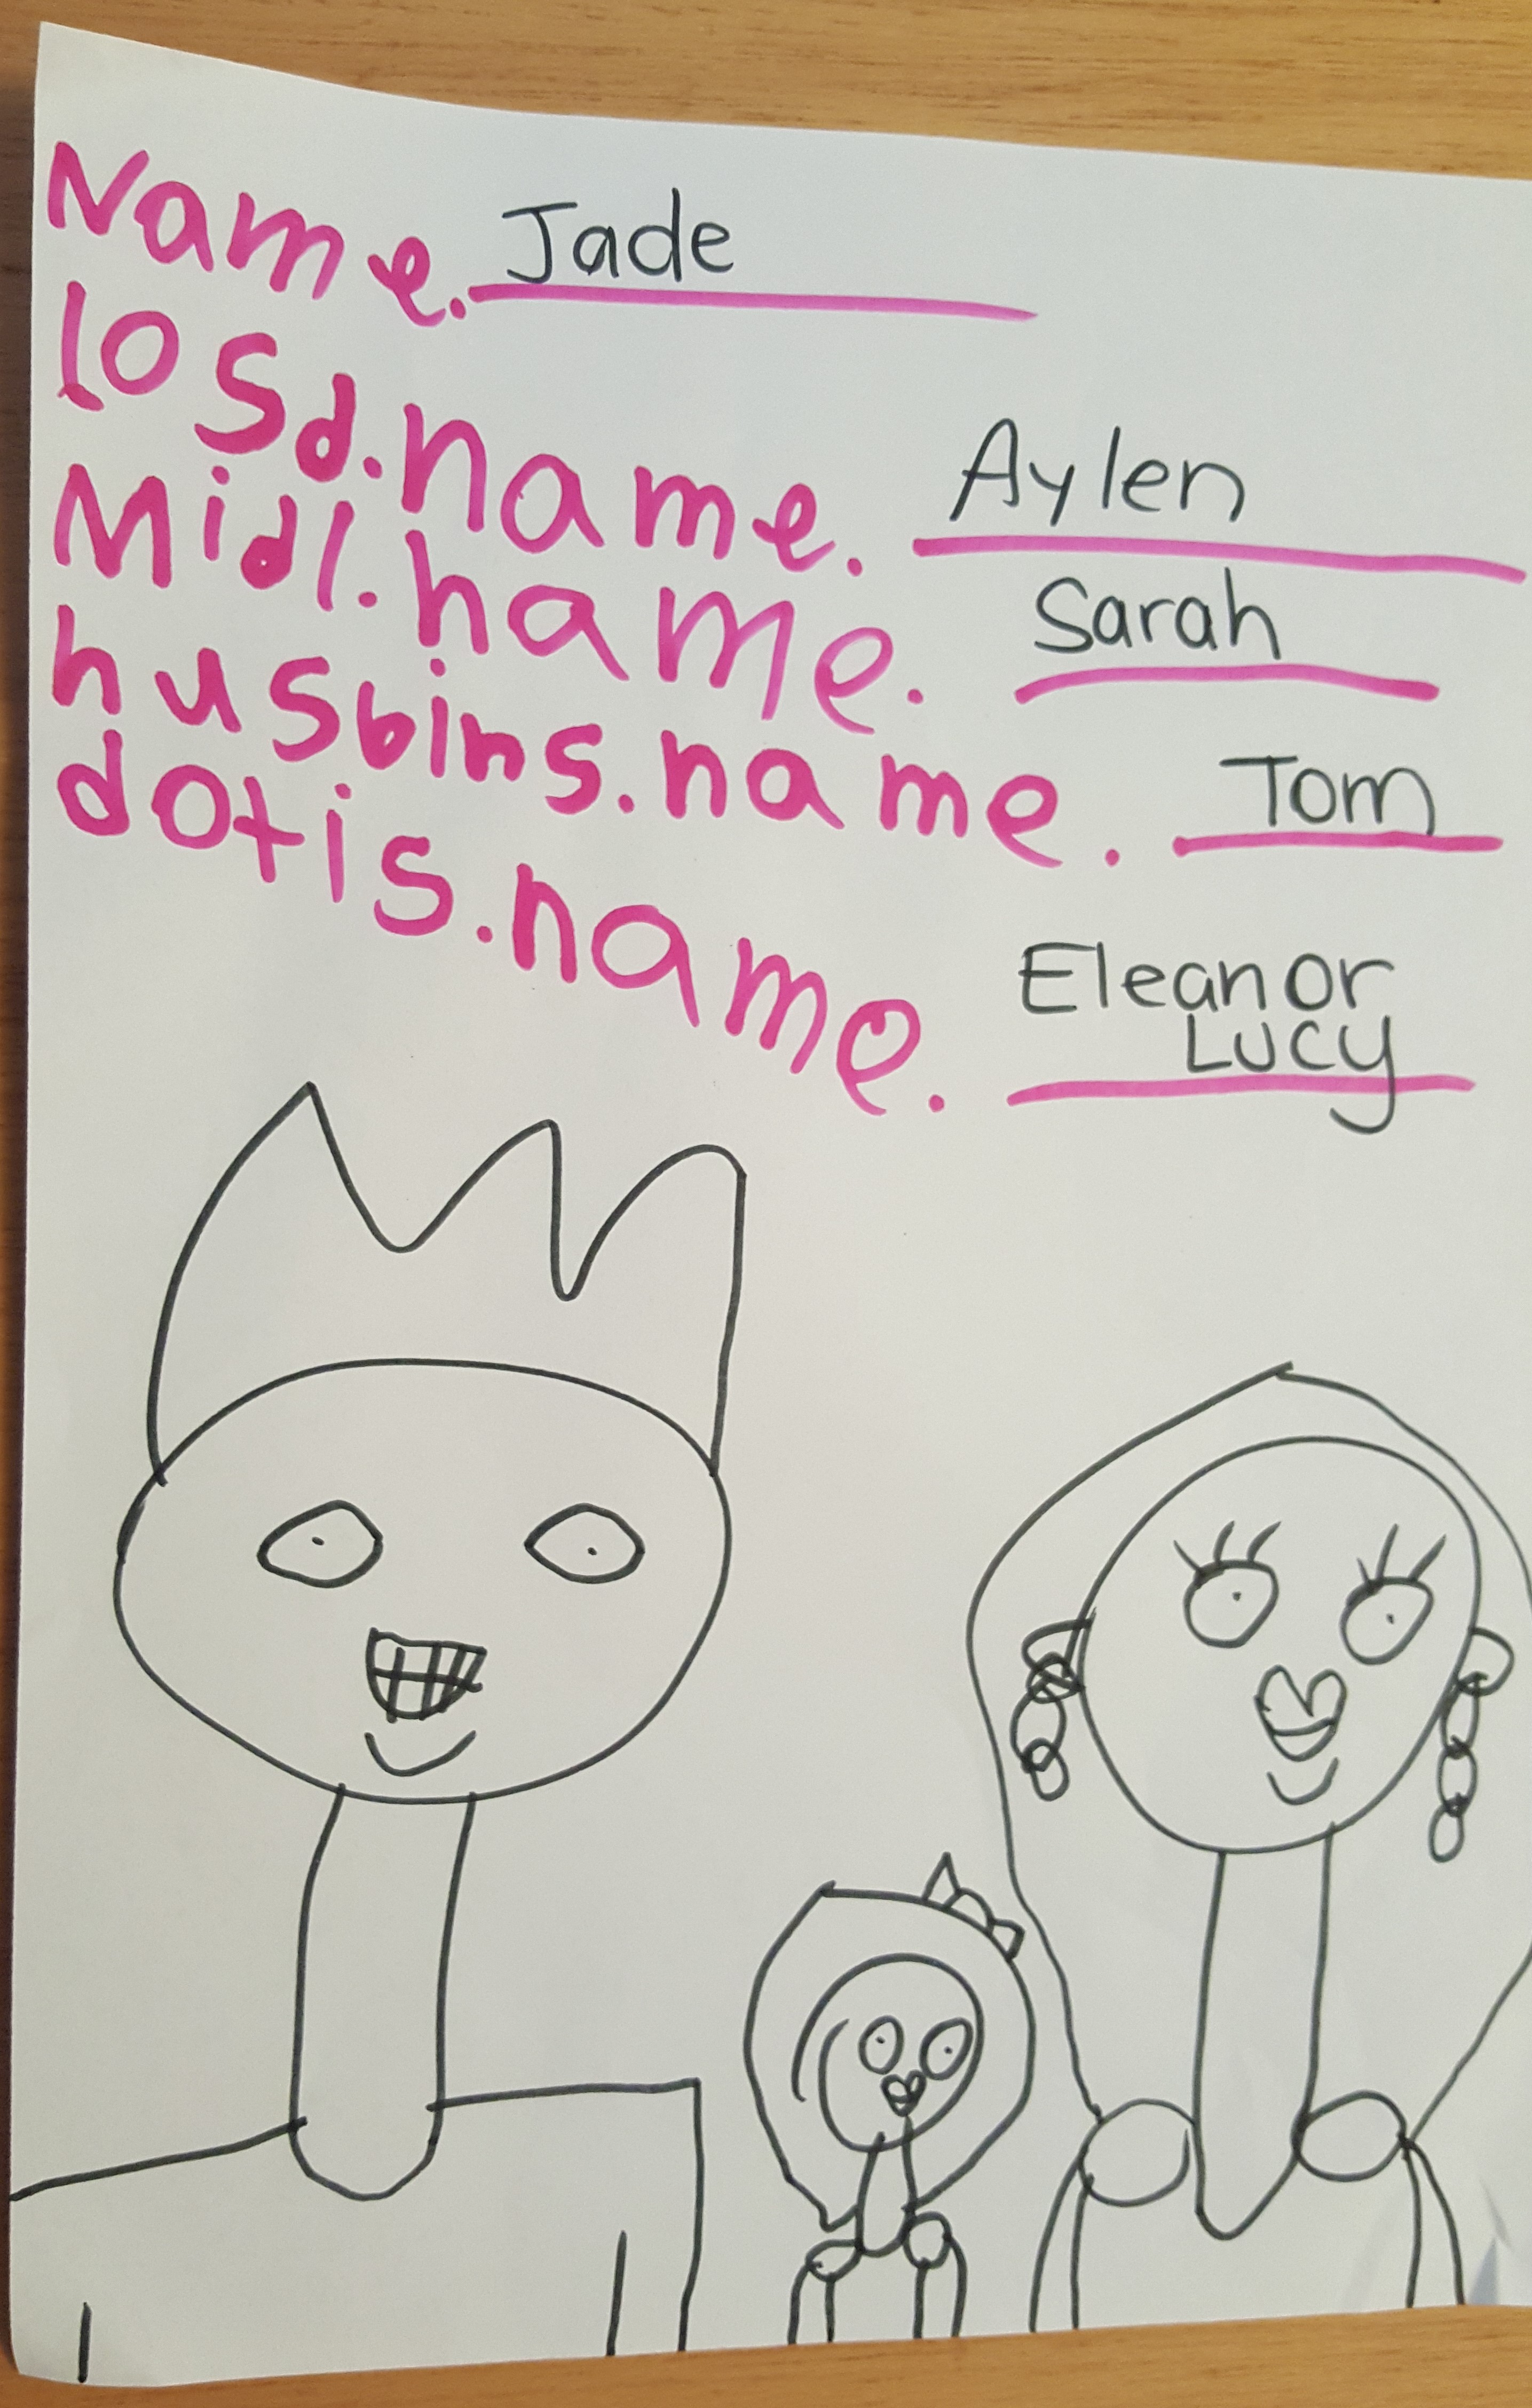 Name. Jade
losd.name. Aylen
Midl.name. Sarah
husbins.name. Tom
dotis.name. Eleanor
Lucy